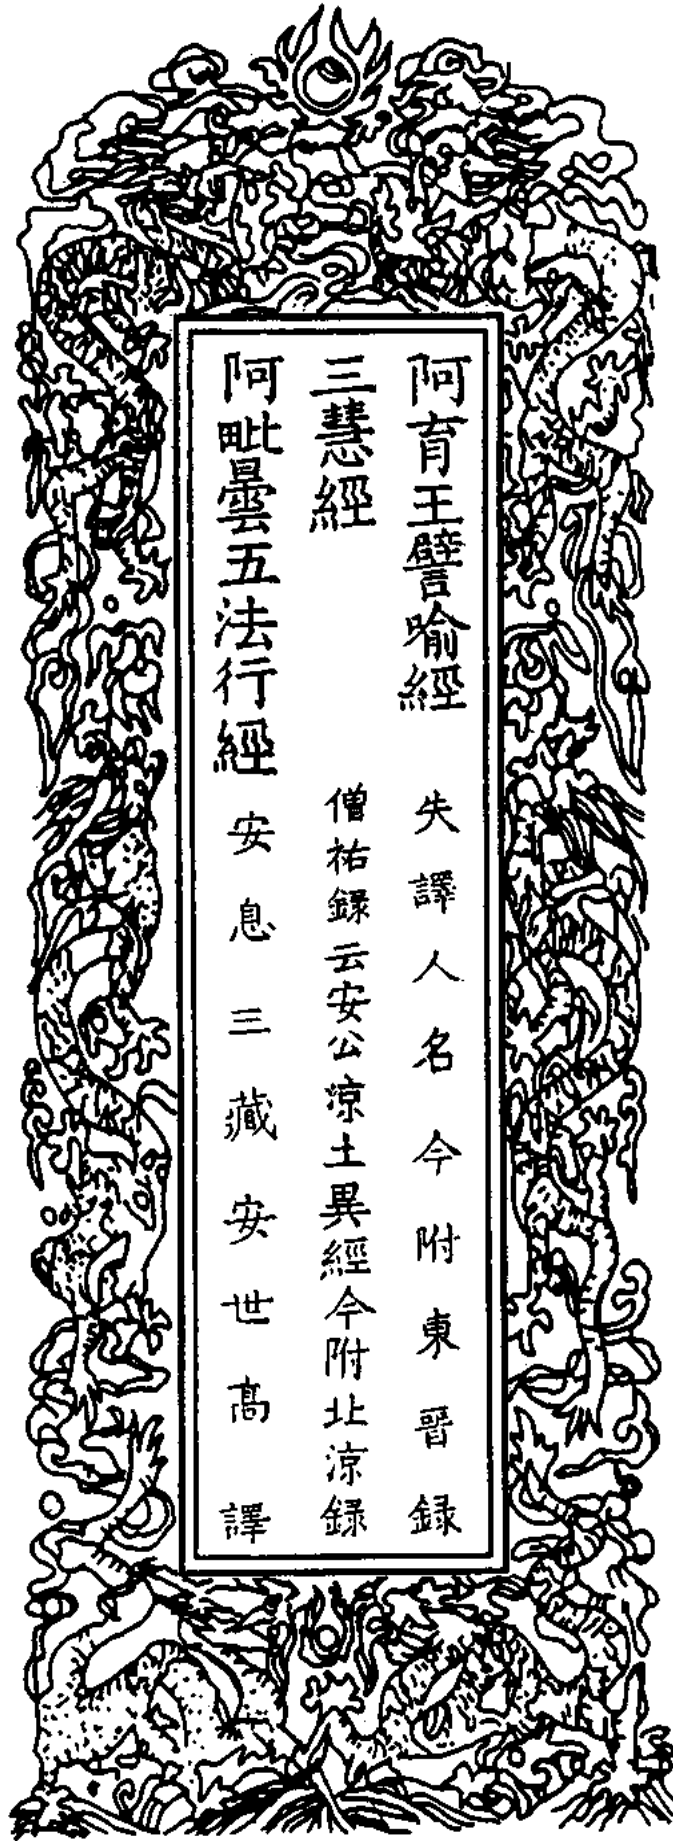 阿育王譬喻經 失譯人名今附東晉錄
三慧經 僧祐錄云安公涼土異經今附北涼錄
阿毗曇五法行經 安息三藏安世高譯